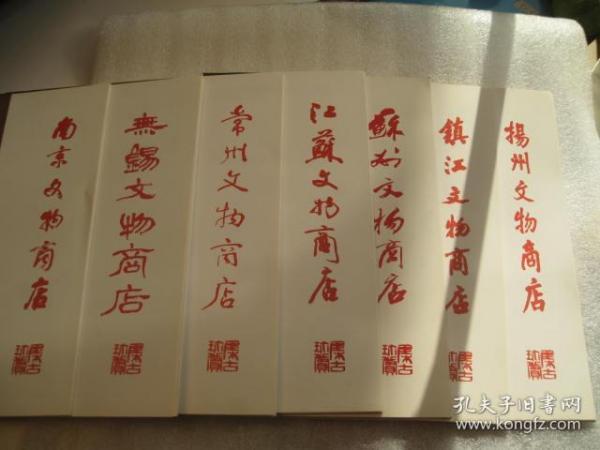 南京文物商店
無錫文物商店
常州文物商店
江蘇文物商店
蘇州文物商店
鎮江文物商店
揚州文物商店
孔夫子旧书网
www.kongfz.com